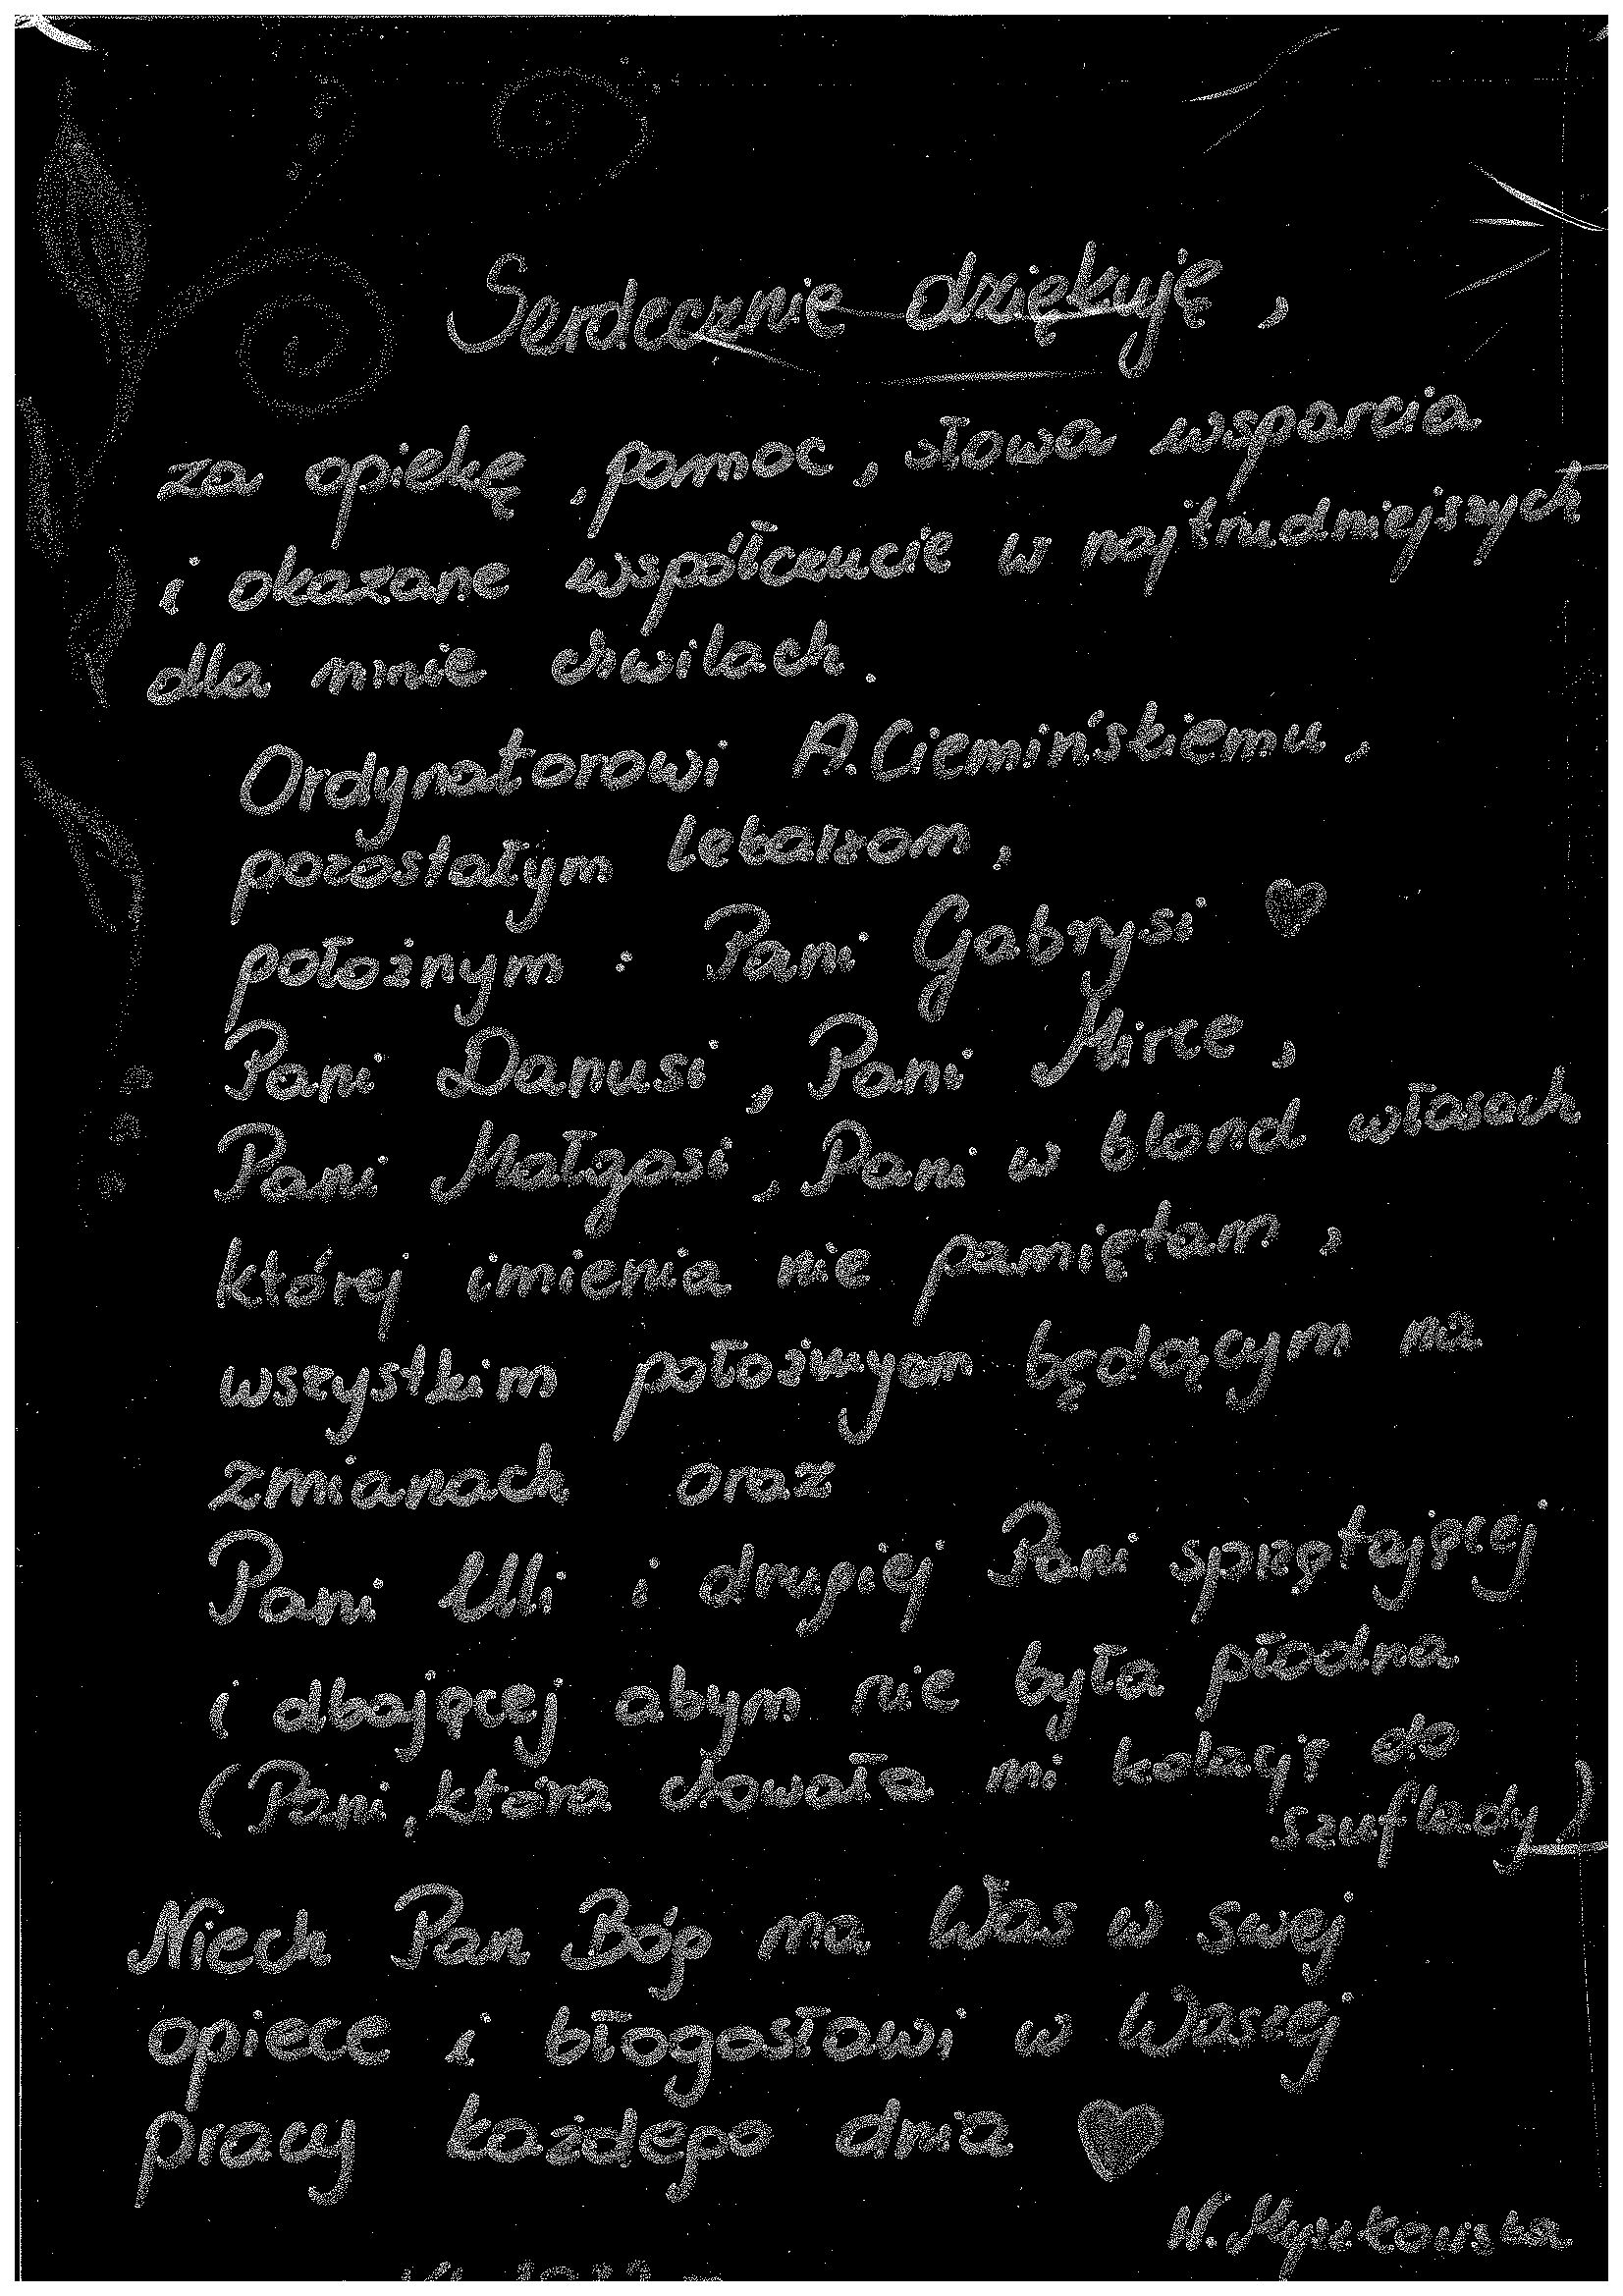 Serdecznie dziękuję,
za opiekę, pomoc, słowa wsparcia
i okazane współczucie w najtrudniejszych
dla mnie chwilach.
Ordynatorowi A. Ciemińskiemu,
pozostałym lekarzom,
położnym: Pani Gabrysi ♥
Pani Danusi, Pani Mirce,
Pani Małgosi, Pani w blond włosach
której imienia nie pamiętam,
wszystkim położnym będącym na
zmianach oraz
Pani Uli i drugiej Pani sprzątającej
i dbającej abym nie była płodna
(Pani, która chowała mi kolację do
szuflady)
Niech Pan Bóg ma Was w swej
opiece i błogosławi w Waszej
pracy każdego dnia ♥